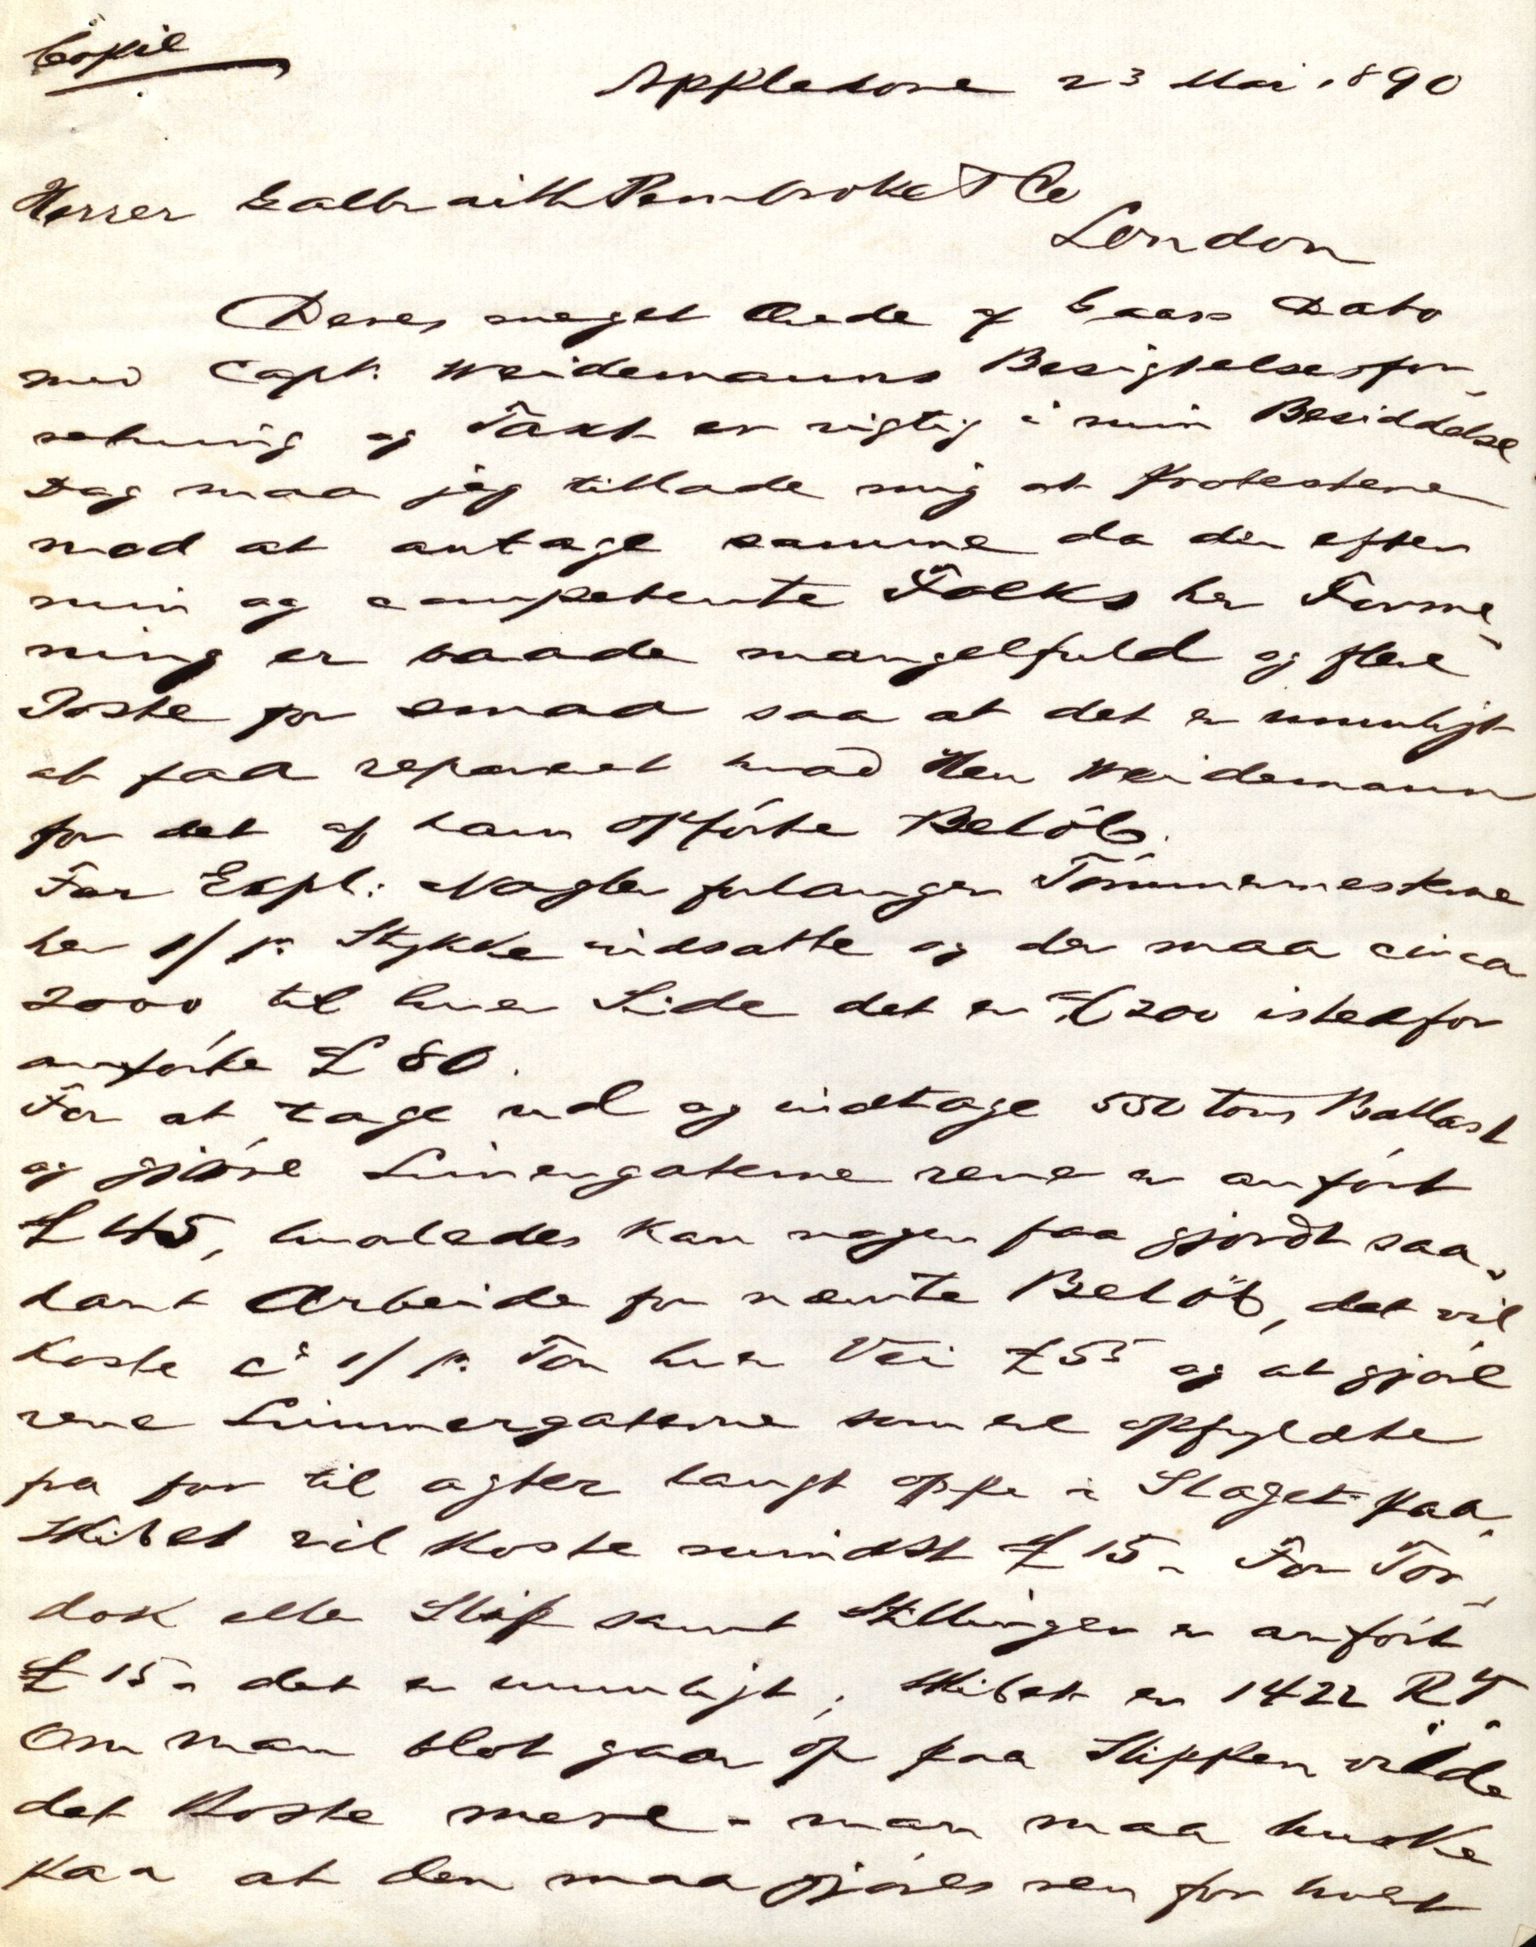 Copie
Appledore 23 Mai 1890
Herrer Galbraith Pembroke & Co
London
Deres meget Ærede af Gaars Dato
med Capt. Weidemanns Besigtelsesfor,
retning og Taxt er rigtig i min Besiddelse
Dog maa jeg tillade mig at Protestere
mod at antage samme da den efter
min og competente Folks her Forme,
ning er baade mangelfuld og flere
Poste for smaa saa at det er umuligt
at faa reparert hvad Herr Weidemann
for det af ham opførte Beløb.
For Expl: Nagler forlanger Tømmermestrene
her 1/ pr. Stykke indsatte og der maa circa
2000 til hver Side det er £ 200 istedfor
anførte £ 80.
For at tage ud og indtage 550 tons Ballast
og gjøre Limergaterne rene er anført
£ 45, hvorledes kan nogen faa gjordt saa,
dant Arbeide for nævnte Beløb, det vil
koste ca 1/ pr. Ton hver Vei £ 55 og at gjøre
rene Limmergaterne som ere opfyldte
fra for til agter langt oppe i Slaget paa
Skibet vil koste mindst £ 15 - For Tør,
dok eller Slip samt Stillinger er anført
£ 15 - det er umuligt, Skibet er 1422 RT.
Om man blot gaar op paa Slippen vilde
det koste mere - man maa huske
paa at den maa gjøres ren for hvert